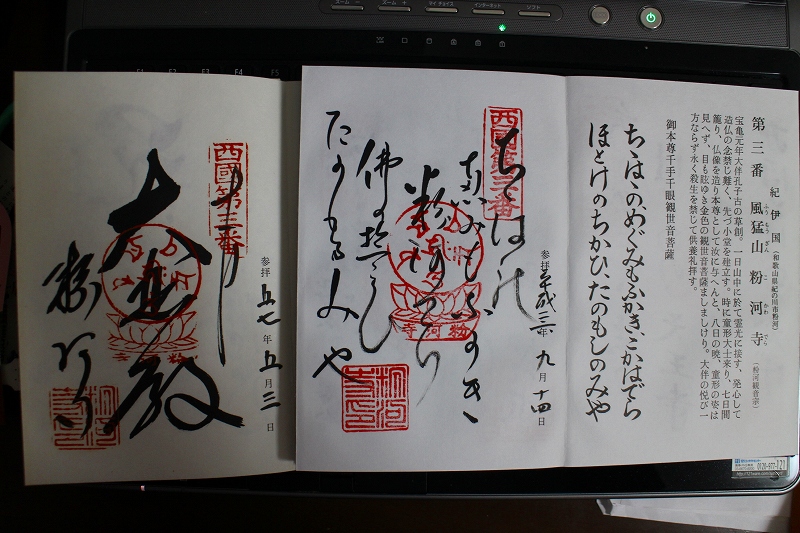 ズーム －
ズーム ＋
マイ チョイス
インターネット
ソフト
F1
F2
F3
F4
F5
紀伊国（和歌山県紀の川市粉河）
第三番 風猛山 粉河寺（粉河観音宗）
ふうもうざん こかわでら
宝亀元年大伴孔子古の草創。一日山中に於て霊光に接す、発心して
造仏の念禁じ難く、先づ小堂を建立す。時に童形大士来り、七日間
籠り、仏像を造り本尊として汝に与へんと、八日の暁、童形の姿は
見へず、目も眩ゆき金色の観世音菩薩ましましけり。大伴の悦び一
方ならず永く殺生を禁じて供養礼拝す。
御本尊千手千眼観世音菩薩
ちゝはゝのめぐみもふかきこかはでら
ほとけのちかひたのもしのみや
西國第三番
参拝 平成三年 九月 十四日
ちゝはゝの
めぐみもふかき
粉河でら
佛の誓ひ
たのもしのみや
粉河寺
西國第三番
大悲殿
粉河寺
参拝 五七年 五月 三日
0120-977-121